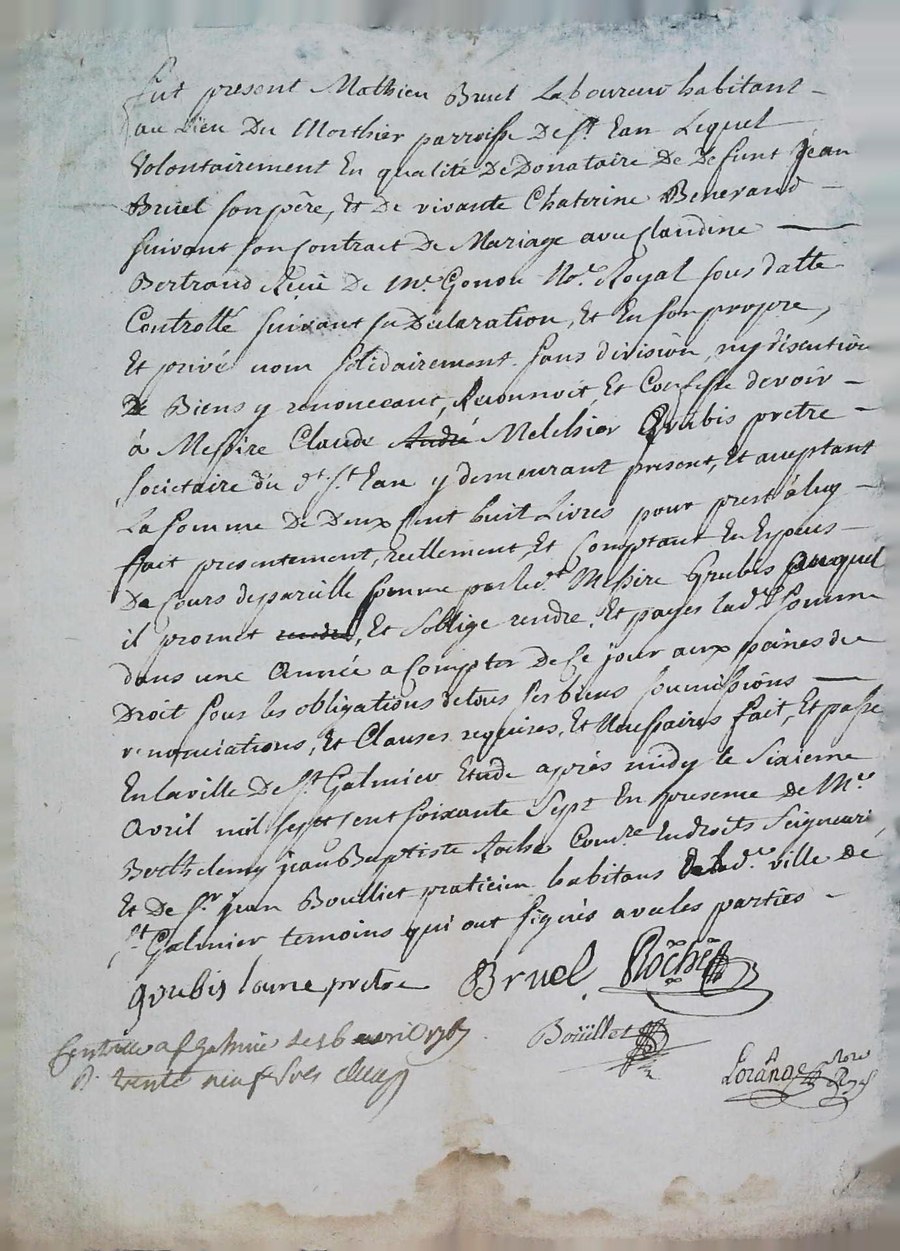 fut present Mathieu Bruel Laboureur habitant
au Lieu Du Morthier parroisse De st. Ean Lequel
Volontairement En qualité De Donataire De Defunt jean
Bruel son père, Et De vivante Chaterine Benevand
suivant son Contrat De Mariage avec Claudine
Bertrand Reçû De Me. Gonon Nore. Royal sous datte
Controllé suivant sa Déclaration, Et En son propre,
Et privé nom solidairement sans division, ny discution
De Biens y renonceant, Reconnoit, Et Confesse devoir
à Messire Claude André Melchior Grubis pretre
societaire du dt. st. Ean y demeurant present, Et aceptant
La somme De Deux Cent huit Livres pour prest à luy
ffait presentement, reellement, Et Comptant En Especes
De Cours de pareille somme par led.t Messire Grubis auquel
il promet rendre, Et s'oblige rendre, Et payer lad.e somme
dans une Année a Compter De Ce jour aux peines de
Droit sous les obligations de tous ses biens soumissions
renonciations, Et Clauses requises, Et Necessaires fait, Et passé
En la ville De st. Galmier Etude après midy le sixieme
Avril mil sept cent soixante sept En presence De Mre.
Barthelemy jean Baptiste Roche Comre. En droits Seigneuri.
Et De sr. jean Boulliet praticien habitans De lad.e ville de
st. Galmier temoins qui ont signés avec les parties
grubis pretre Bruel Roche
Controllé a st Galmier le 16 avril 1767
R. trente neuf sols
Boüllet
Lorange Nore Roy